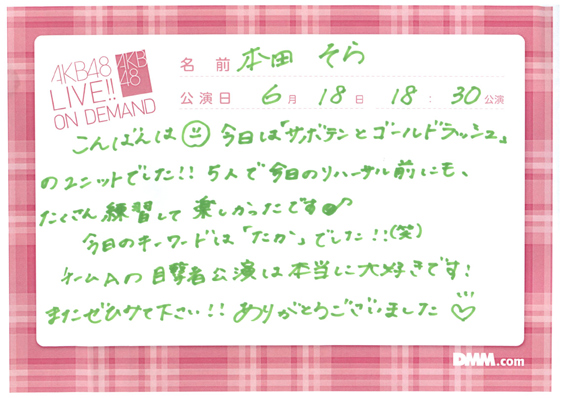 AKB48
LIVE!!
ON DEMAND
AKB
48
名前 本田 そら
公演日 6月 18日 18:30公演
こんばんは 今日は「サボテンとゴールドラッシュ」
のユニットでした!! 5人で今日のリハーサル前にも、
たくさん練習して楽しかったです♪
今日のキーワードは「たか」でした!!(笑)
チームAの目撃者公演は本当に大好きです!
またぜひみて下さい!! ありがとうございました♡
DMM.com